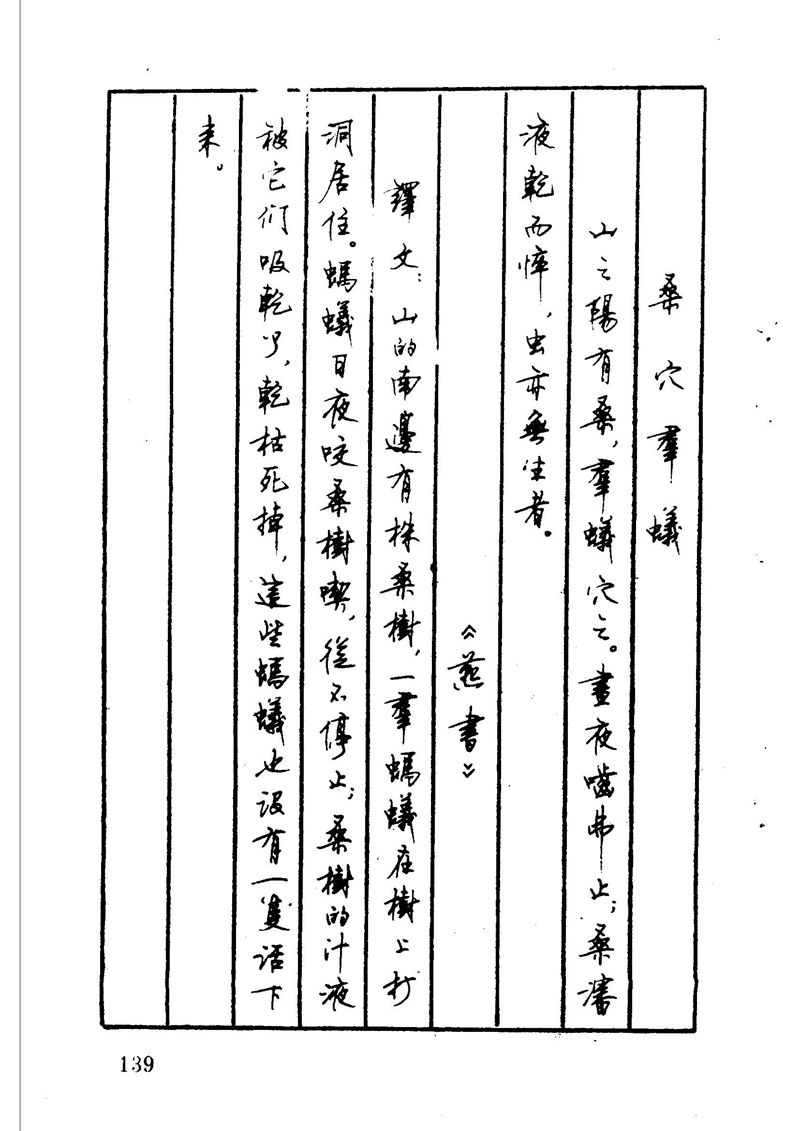 桑穴羣蟻
山之陽有桑，羣蟻穴之。晝夜嚙弗止；桑瀋
液乾而悴，虫亦無生者。
《燕書》
譯文：山的南邊有株桑樹，一羣螞蟻在樹上打
洞居住。螞蟻日夜咬桑樹喫，從不停止；桑樹的汁液
被它们吸乾了，乾枯死掉，這些螞蟻也没有一隻活下
来。
139